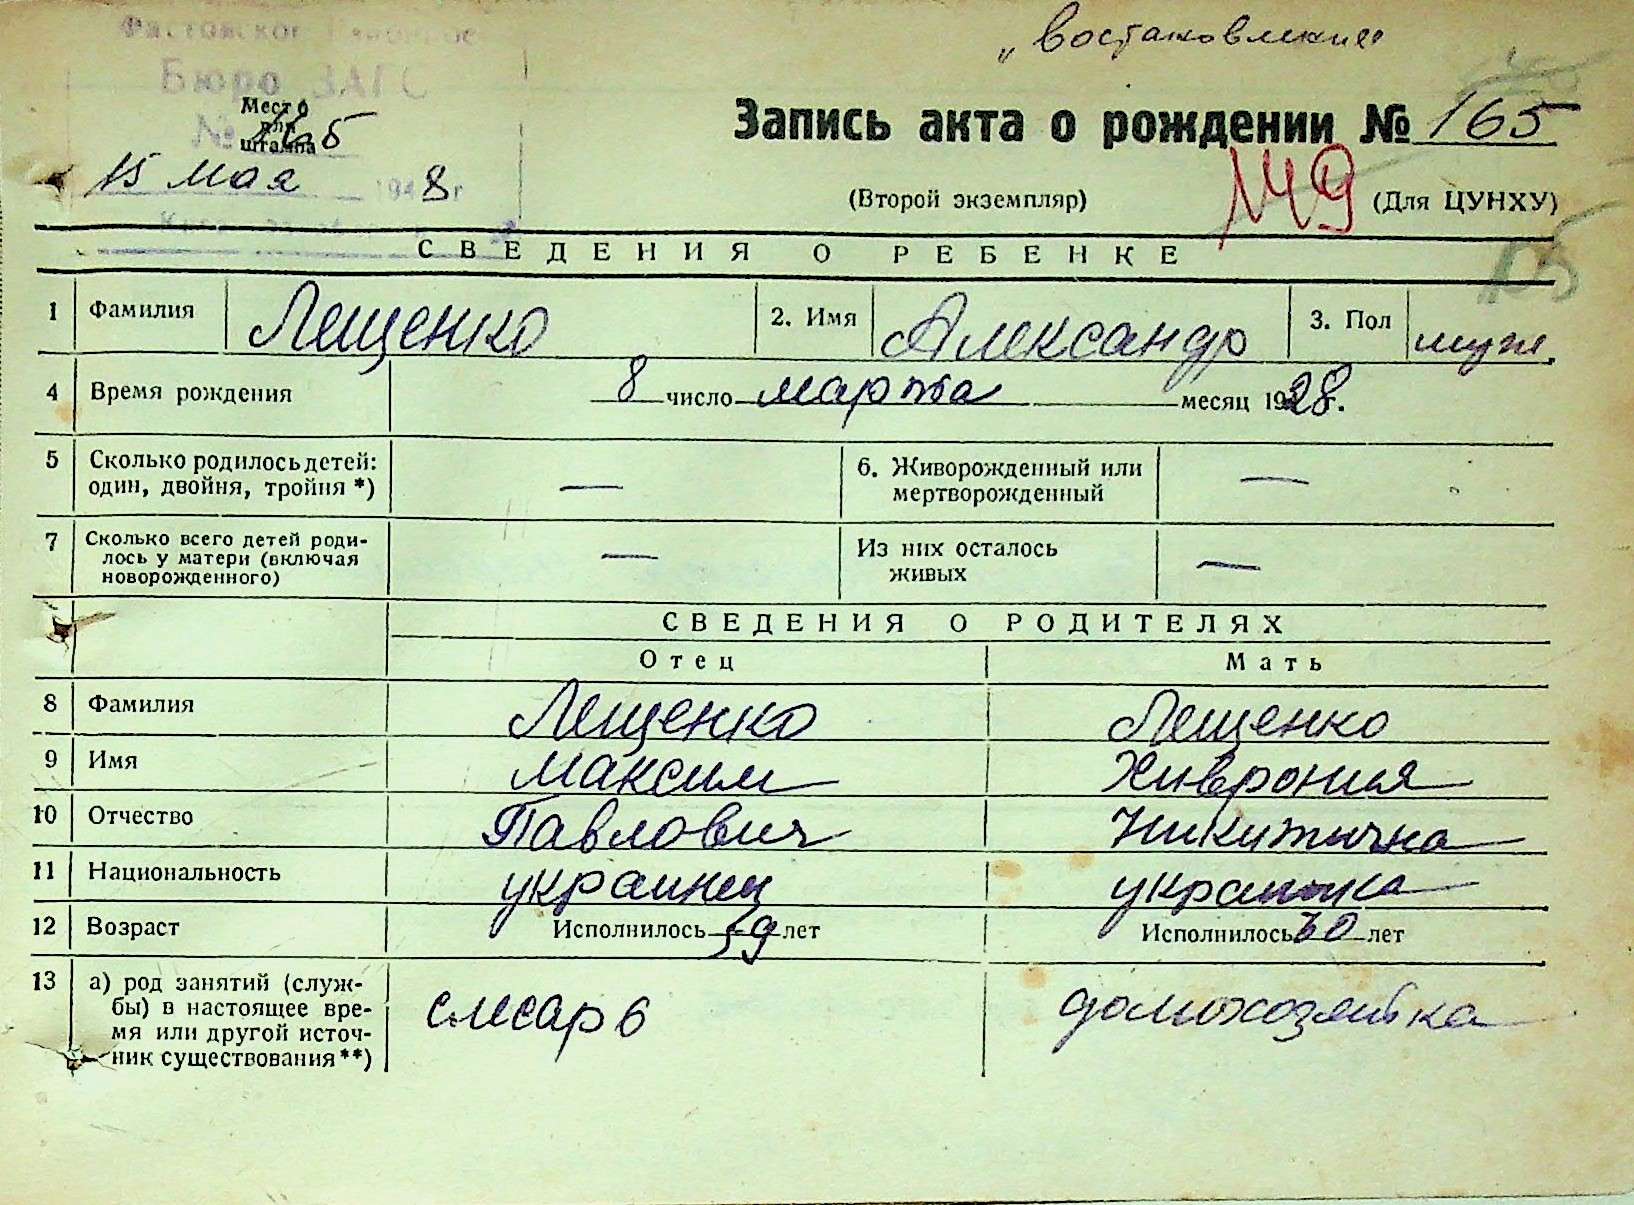 „востановление"
Бюро ЗАГС
Место
для
штампа
№
15 мая 1948 г
Запись акта о рождении № 165
(Второй экземпляр)
(Для ЦУНХУ)
СВЕДЕНИЯ О РЕБЕНКЕ
1 Фамилия Лещенко 2. Имя Александр 3. Пол муж.
4 Время рождения 8 число марта месяц 1928 г.
5 Сколько родилось детей: 6. Живорожденный или
один, двойня, тройня *) — мертворожденный —
7 Сколько всего детей роди- Из них осталось
лось у матери (включая — живых —
новорожденного)
СВЕДЕНИЯ О РОДИТЕЛЯХ
Отец Мать
8 Фамилия Лещенко Лещенко
9 Имя Максим Хиврония
10 Отчество Павлович Никитична
11 Национальность украинец украинка
12 Возраст Исполнилось 59 лет Исполнилось лет
13 а) род занятий (служ-
бы) в настоящее вре- слесарь домохозяйка
мя или другой источ-
ник существования **)